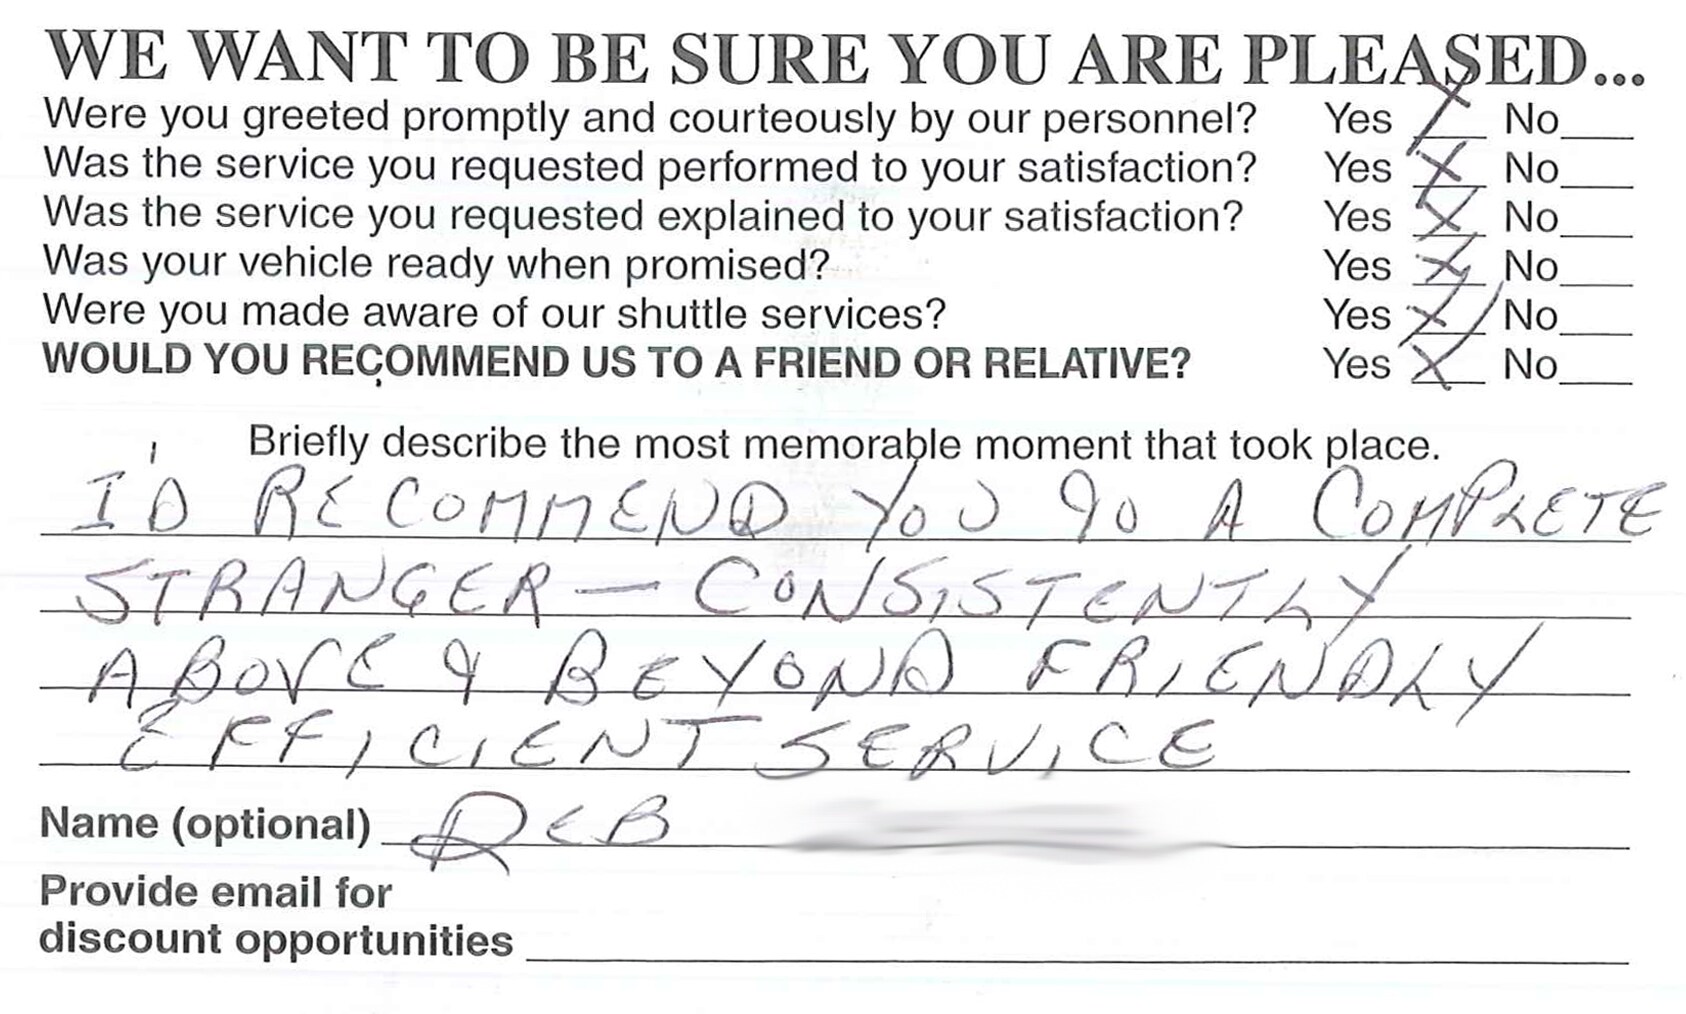 WE WANT TO BE SURE YOU ARE PLEASED...
Were you greeted promptly and courteously by our personnel? Yes X No
Was the service you requested performed to your satisfaction? Yes X No
Was the service you requested explained to your satisfaction? Yes X No
Was your vehicle ready when promised? Yes X No
Were you made aware of our shuttle services? Yes X No
WOULD YOU RECOMMEND US TO A FRIEND OR RELATIVE? Yes X No
Briefly describe the most memorable moment that took place.
I'D RECOMMEND YOU TO A COMPLETE
STRANGER — CONSISTENTLY
ABOVE & BEYOND FRIENDLY
EFFICIENT SERVICE
Name (optional) DEB
Provide email for
discount opportunities